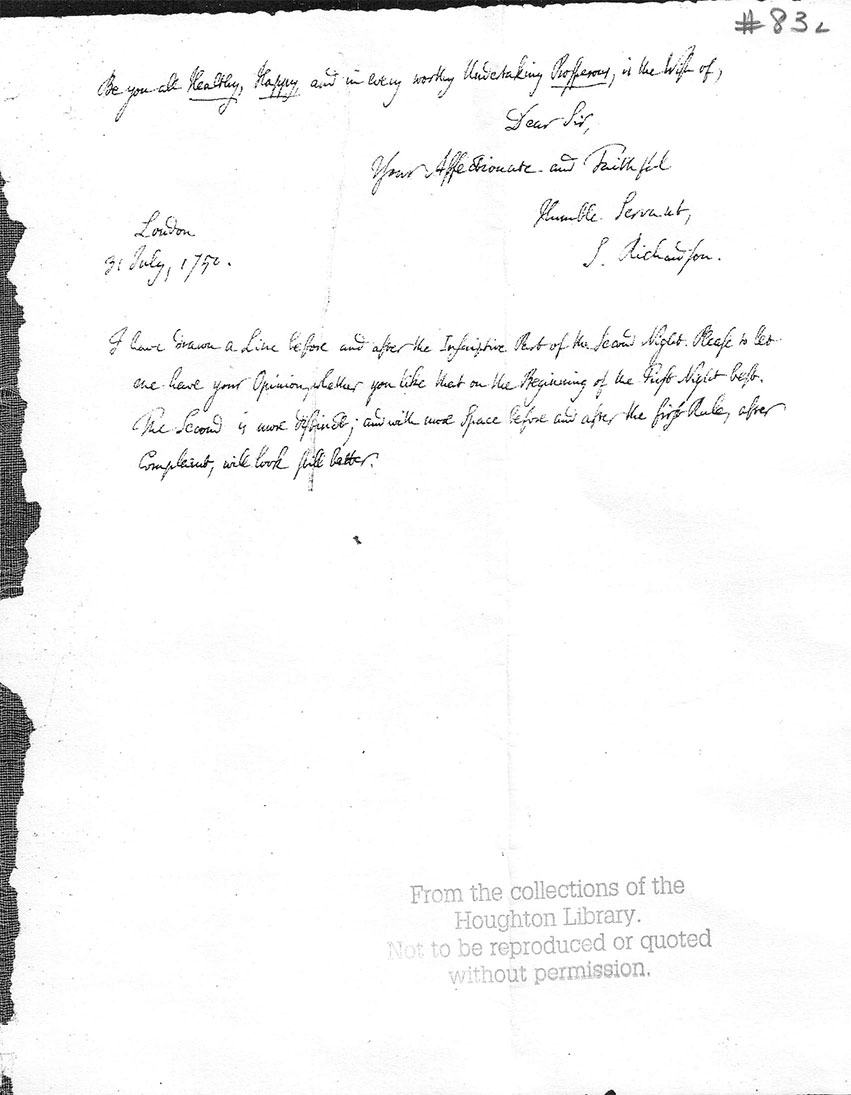 #83
Be you all Healthy, Happy, and in every worthy Undertaking Prosperous, is the Wish of,
Dear Sir,
Your Affectionate and Faithful
Humble Servant,
S. Richardson.
London
31 July, 1750.
I have drawn a Line before and after the Part of the Second Night. Please to let
me have your Opinion, whether you like that on the Beginning of the First Night best.
The Second is more distinct; and with more Space before and after the first Rule, after
Complaint, will look still better.
From the collections of the
Houghton Library.
Not to be reproduced or quoted
without permission.